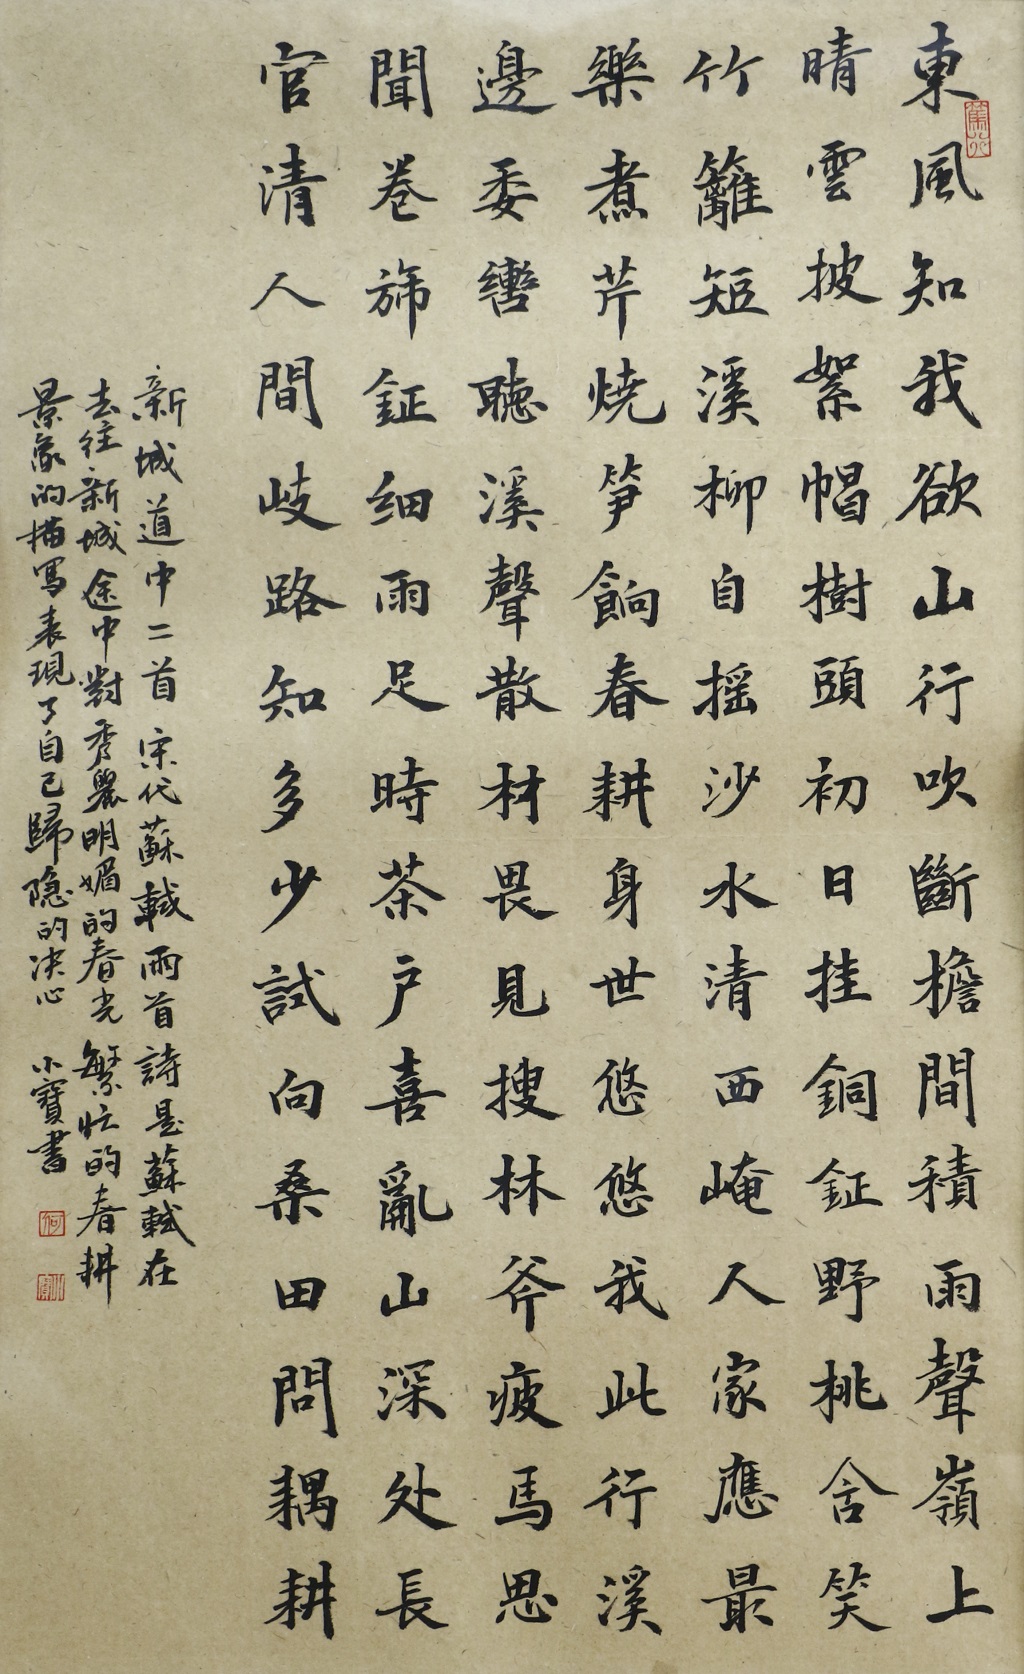 東風知我欲山行吹斷檐間積雨聲嶺上
晴雲披絮帽樹頭初日挂銅鉦野桃含笑
竹籬短溪柳自摇沙水清西崦人家應最
樂煮芹燒笋餉春耕身世悠悠我此行溪
邊委轡聽溪聲散材畏見搜林斧疲馬思
聞卷旆鉦细雨足時茶户喜亂山深处長
官清人間岐路知多少試向桑田問耦耕
新城道中二首宋代蘇軾兩首詩是蘇軾在
去往新城途中對秀麗明媚的春光繁忙的春耕
景象的描寫表現了自己歸隐的决心 小寶書